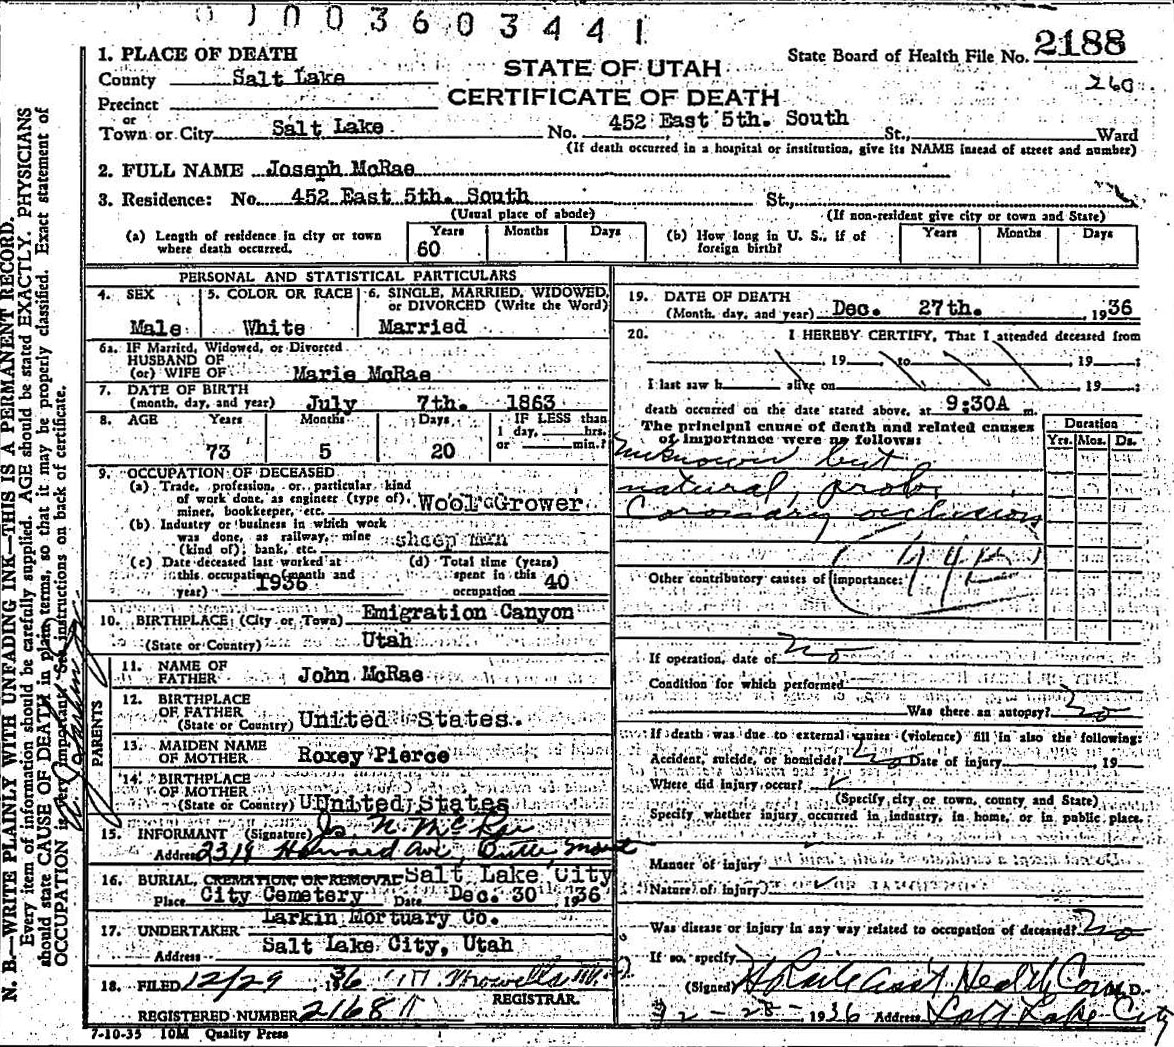 01003603441
State Board of Health File No. 2188
260
1. PLACE OF DEATH
County Salt Lake
STATE OF UTAH
CERTIFICATE OF DEATH
Precinct
or
Town or City Salt Lake No. 452 East 5th. South St., Ward
(If death occurred in a hospital or institution, give its NAME insead of street and number)
2. FULL NAME Joseph McRae
3. Residence: No. 452 East 5th. South St.,
(Usual place of abode) (If non-resident give city or town and State)
(a) Length of residence in city or town where death occurred. Years 60 Months Days
(b) How long in U. S., if of foreign birth? Years Months Days
PERSONAL AND STATISTICAL PARTICULARS
4. SEX Male
5. COLOR OR RACE White
6. SINGLE, MARRIED, WIDOWED, or DIVORCED (Write the Word) Married
6a. IF Married, Widowed, or Divorced
HUSBAND OF
(or) WIFE OF Marie McRae
7. DATE OF BIRTH
(month, day, and year) July 7th. 1863
8. AGE Years 73 Months 5 Days 20
IF LESS than
1 day, hrs.
or min.?
9. OCCUPATION OF DECEASED
(a) Trade, profession, or particular kind
of work done, as engineer (type of),
miner, bookkeeper, etc. Wool Grower
(b) Industry or business in which work
was done, as railway, mine
(kind of); bank, etc. sheep man
(c) Date deceased last worked at
this occupation (month and
year) 1936
(d) Total time (years)
spent in this
occupation 40
10. BIRTHPLACE (City or Town) Emigration Canyon
(State or Country) Utah
PARENTS
11. NAME OF
FATHER John McRae
12. BIRTHPLACE
OF FATHER
(State or Country) United States.
13. MAIDEN NAME
OF MOTHER Roxey Pierce
14. BIRTHPLACE
OF MOTHER
(State or Country) United States
15. INFORMANT (Signature) Js. N. McRae
Address 2319 Howard Ave, Butte, Mont
16. BURIAL, CREMATION, OR REMOVAL Salt Lake City
Place City Cemetery Date Dec. 30 1936
17. UNDERTAKER Larkin Mortuary Co.
Address Salt Lake City, Utah
18. FILED 12/29 1936
REGISTRAR.
REGISTERED NUMBER 2168
7-10-35 10M Quality Press
19. DATE OF DEATH
(Month, day, and year) Dec. 27th. , 1936
20. I HEREBY CERTIFY, That I attended deceased from
, 19 to , 19 ;
I last saw h alive on , 19 ;
death occurred on the date stated above, at 9:30A m.
The principal cause of death and related causes
of importance were as follows:
Duration
Yrs. Mos. Ds.
Unknown but
natural, prob.
Coronary occlusion
Other contributory causes of importance:
If operation, date of No
Condition for which performed
Was there an autopsy? No
If death was due to external causes (violence) fill in also the following:
Accident, suicide, or homicide? No Date of injury , 19
Where did injury occur?
(Specify city or town, county and State)
Specify whether injury occurred in industry, in home, or in public place.
Manner of injury
Nature of injury
Was disease or injury in any way related to occupation of deceased? No
If so, specify
(Signed) Health Com M. D.
12-28-1936 Address Salt Lake City
N. B.—WRITE PLAINLY WITH UNFADING INK—THIS IS A PERMANENT RECORD.
Every item of information should be carefully supplied. AGE should be stated EXACTLY. PHYSICIANS
should state CAUSE OF DEATH in plain terms, so that it may be properly classified. Exact statement of
OCCUPATION is very important. See instructions on back of certificate.